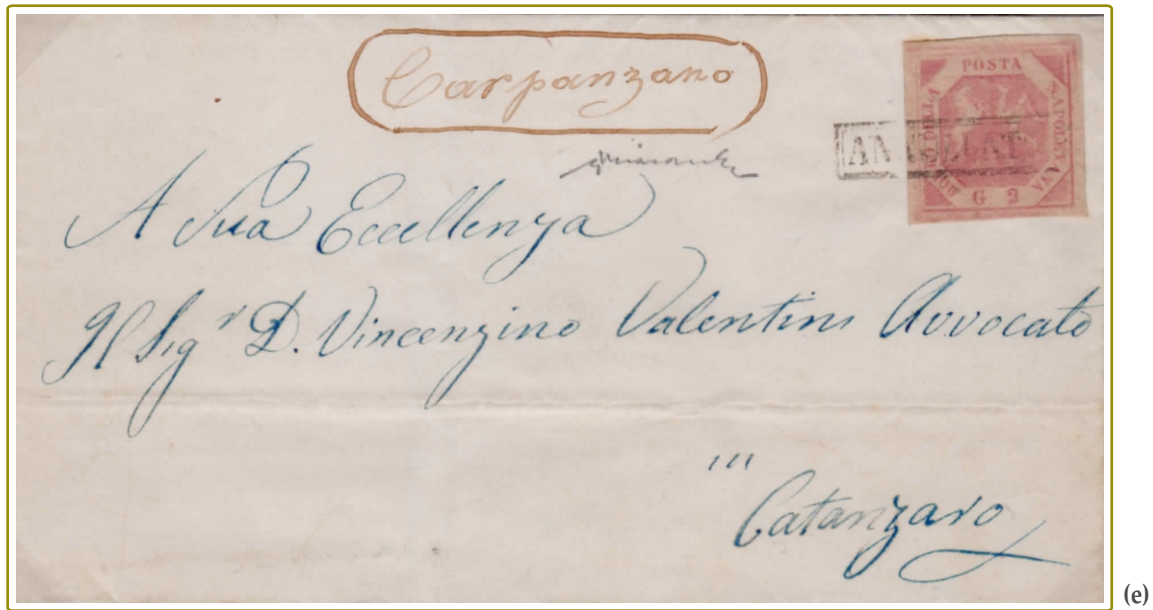 Carpanzano
POSTA
NAPOLETANA
G 2
A Sua Eccellenza
Il Sigʳ D. Vincenzino Valentini Avvocato
Catanzaro
(e)